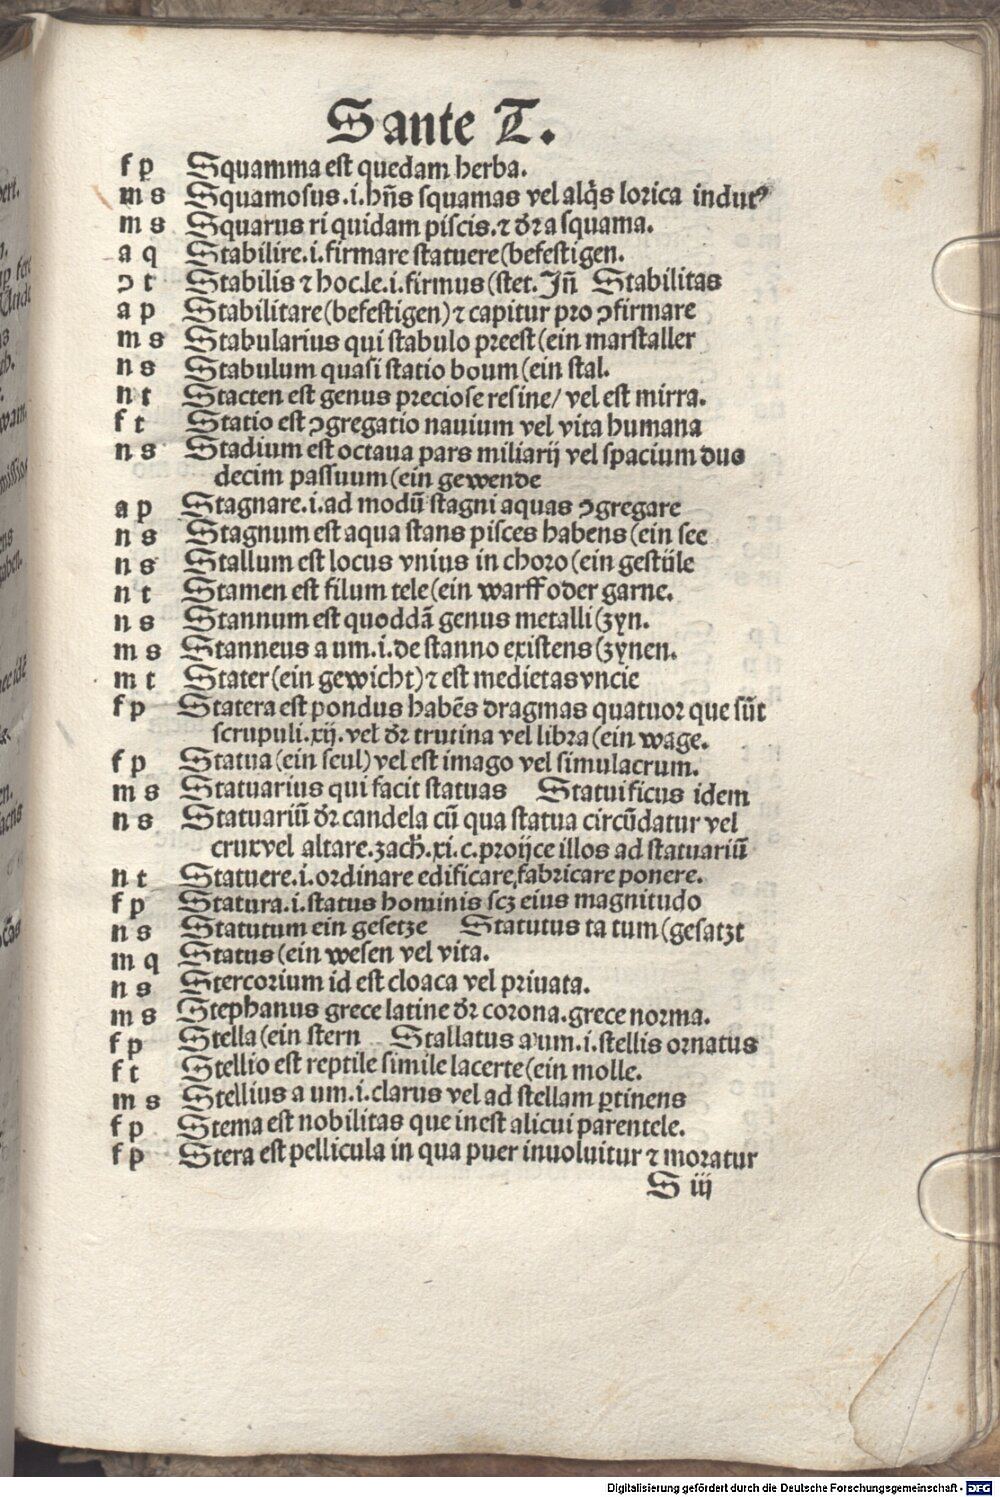 Sante T.
f p Squamma est quedam herba.
m s Squamosus.i.hn̄s squamas vel alq̄s lorica indutꝰ
m s Squarus ri quidam piscis.⁊ dr̄ a squama.
a q Stabilire.i.firmare statuere(befestigen.
ɔ t Stabilis ⁊ hoc.le.i.firmus(stet. Jn̄ Stabilitas
a p Stabilitare(befestigen)⁊ capitur pro ɔfirmare
m s Stabularius qui stabulo preest(ein marstaller
n s Stabulum quasi statio boum(ein stal.
n t Stacten est genus preciose resine/ vel est mirra.
f t Statio est ɔgregatio nauium vel vita humana
n s Stadium est octaua pars miliarij vel spacium duo
decim passuum(ein gewende
a p Stagnare.i.ad modū stagni aquas ɔgregare
n s Stagnum est aqua stans pisces habens(ein see
n s Stallum est locus vnius in choro(ein gestüle
n t Stamen est filum tele(ein warff oder garne.
n s Stannum est quoddā genus metalli(zyn.
m s Stanneus a um.i.de stanno existens(zynen.
m t Stater(ein gewicht)⁊ est medietas vncie
f p Statera est pondus habēs dragmas quatuor que sūt
scrupuli.xij.vel dr̄ trutina vel libra(ein wage.
f p Statua(ein seul)vel est imago vel simulacrum.
m s Statuarius qui facit statuas Statuificus idem
n s Statuariū dr̄ candela cū qua statua circūdatur vel
crux vel altare.zach̄.xi.c.proijce illos ad statuariū
n t Statuere.i.ordinare edificare,fabricare ponere.
f p Statura.i.status hominis scꝫ eius magnitudo
n s Statutum ein gesetze Statutus ta tum(gesatzt
m q Status(ein wesen vel vita.
n s Stercorium id est cloaca vel priuata.
m s Stephanus grece latine dr̄ corona.grece norma.
f p Stella(ein stern Stallatus a um.i.stellis ornatus
f t Stellio est reptile simile lacerte(ein molle.
m s Stellius a um.i.clarus vel ad stellam ꝑtinens
f p Stema est nobilitas que inest alicui parentele.
f p Stera est pellicula in qua puer inuoluitur ⁊ moratur
S iij
Digitalisierung gefördert durch die Deutsche Forschungsgemeinschaft - DFG